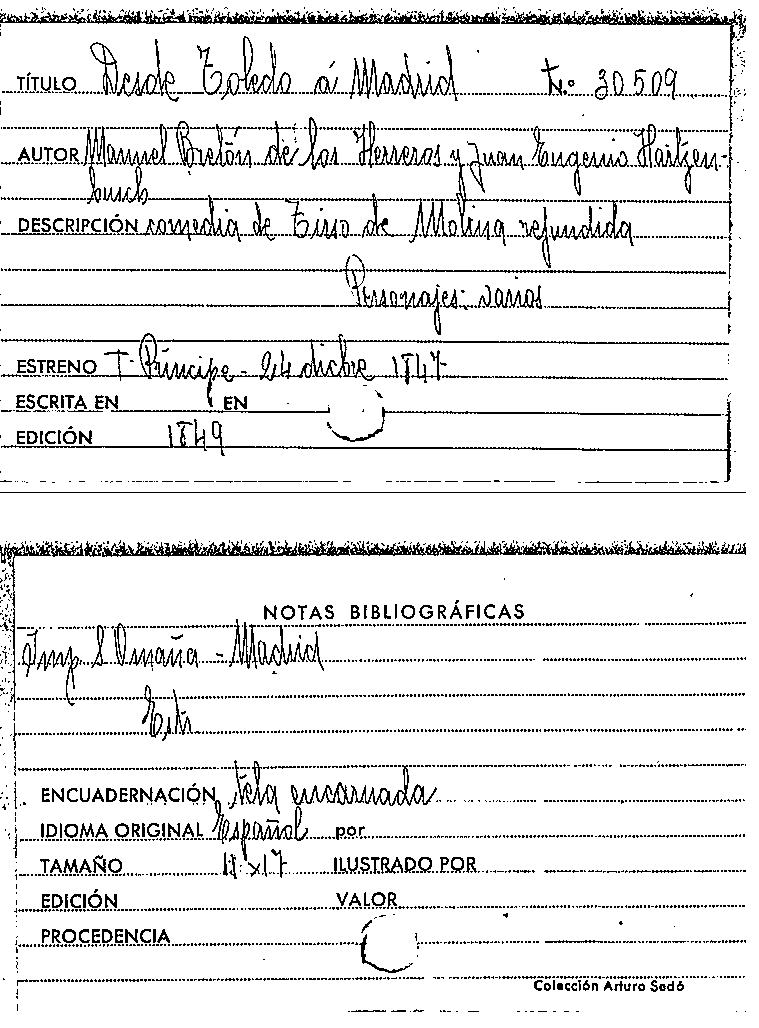 TÍTULO Desde Toledo á Madrid N.º 30509
AUTOR Manuel Bretón de los Herreros y Juan Eugenio Hartzen-
busch
DESCRIPCIÓN comedia de Tirso de Molina refundida
Personajes: varios
ESTRENO T. Príncipe - 24 dicbre 1847
ESCRITA EN EN
EDICIÓN 1849
NOTAS BIBLIOGRÁFICAS
Imp. S Omaña - Madrid
ENCUADERNACIÓN tela encarnada
IDIOMA ORIGINAL Español por
TAMAÑO 11 x 17 ILUSTRADO POR
EDICIÓN VALOR
PROCEDENCIA
Colección Arturo Sedó